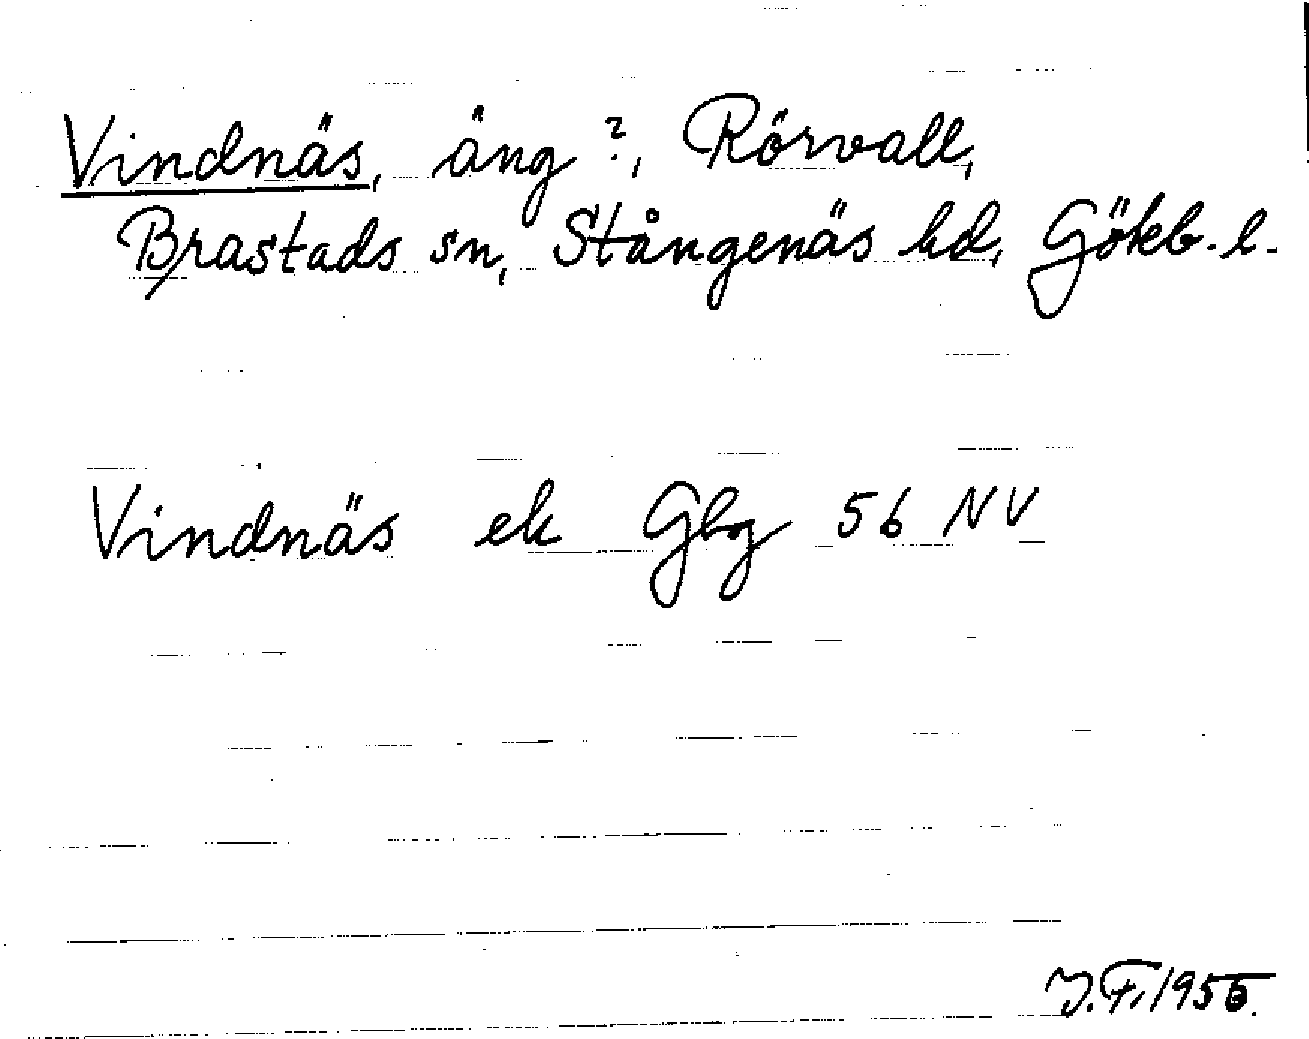 Vindnäs, äng ?, Rörvall,
Brastads sn, Stångenäs hd, Göteb. l.
Vindnäs ek Gbg 56 NV
J.F. 1955.